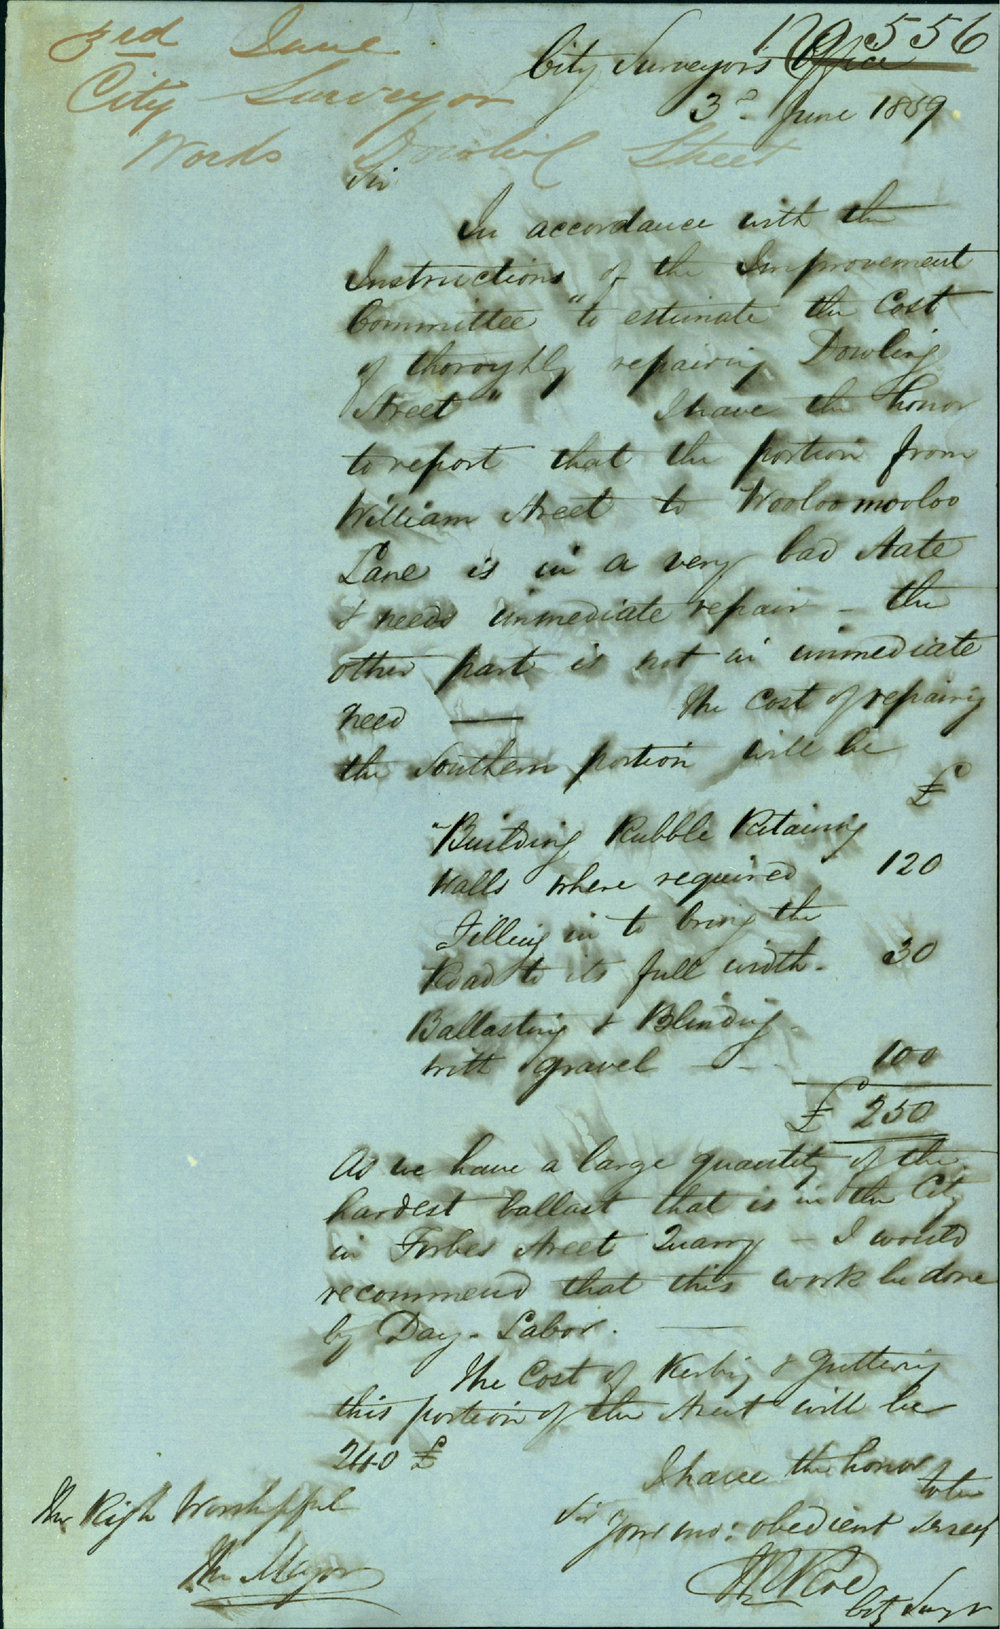 3rd June
City Surveyor
Works Dowling Street
No 556
City Surveyor's Office
3d June 1859
Sir
In accordance with the
Instructions of the Improvement
Committee "to estimate the Cost
of thoroughly repairing Dowling
Street" I have the honor
to report that the portion from
William Street to Wooloomooloo
Lane is in a very bad State
& needs immediate repair - the
other part is not in immediate
need — The Cost of repairing
the Southern portion will be
£
"Building Rubble Retaining
Walls where required 120
Filling in to bring the
Road to its full width - 30
Ballasting & Blinding -
with gravel - - - 100
£ 250
As we have a large quantity of the
hardest ballast that is in the City
in Forbes Street Quarry - I would
recommend that this work be done
by Day - Labor. —
The Cost of Kerbing & Guttering
this portion of the Street will be
240 £
I have the honor
to be
Sir
Your mo: obedient Servt
City Survyr
The Right Worshipful
The Mayor